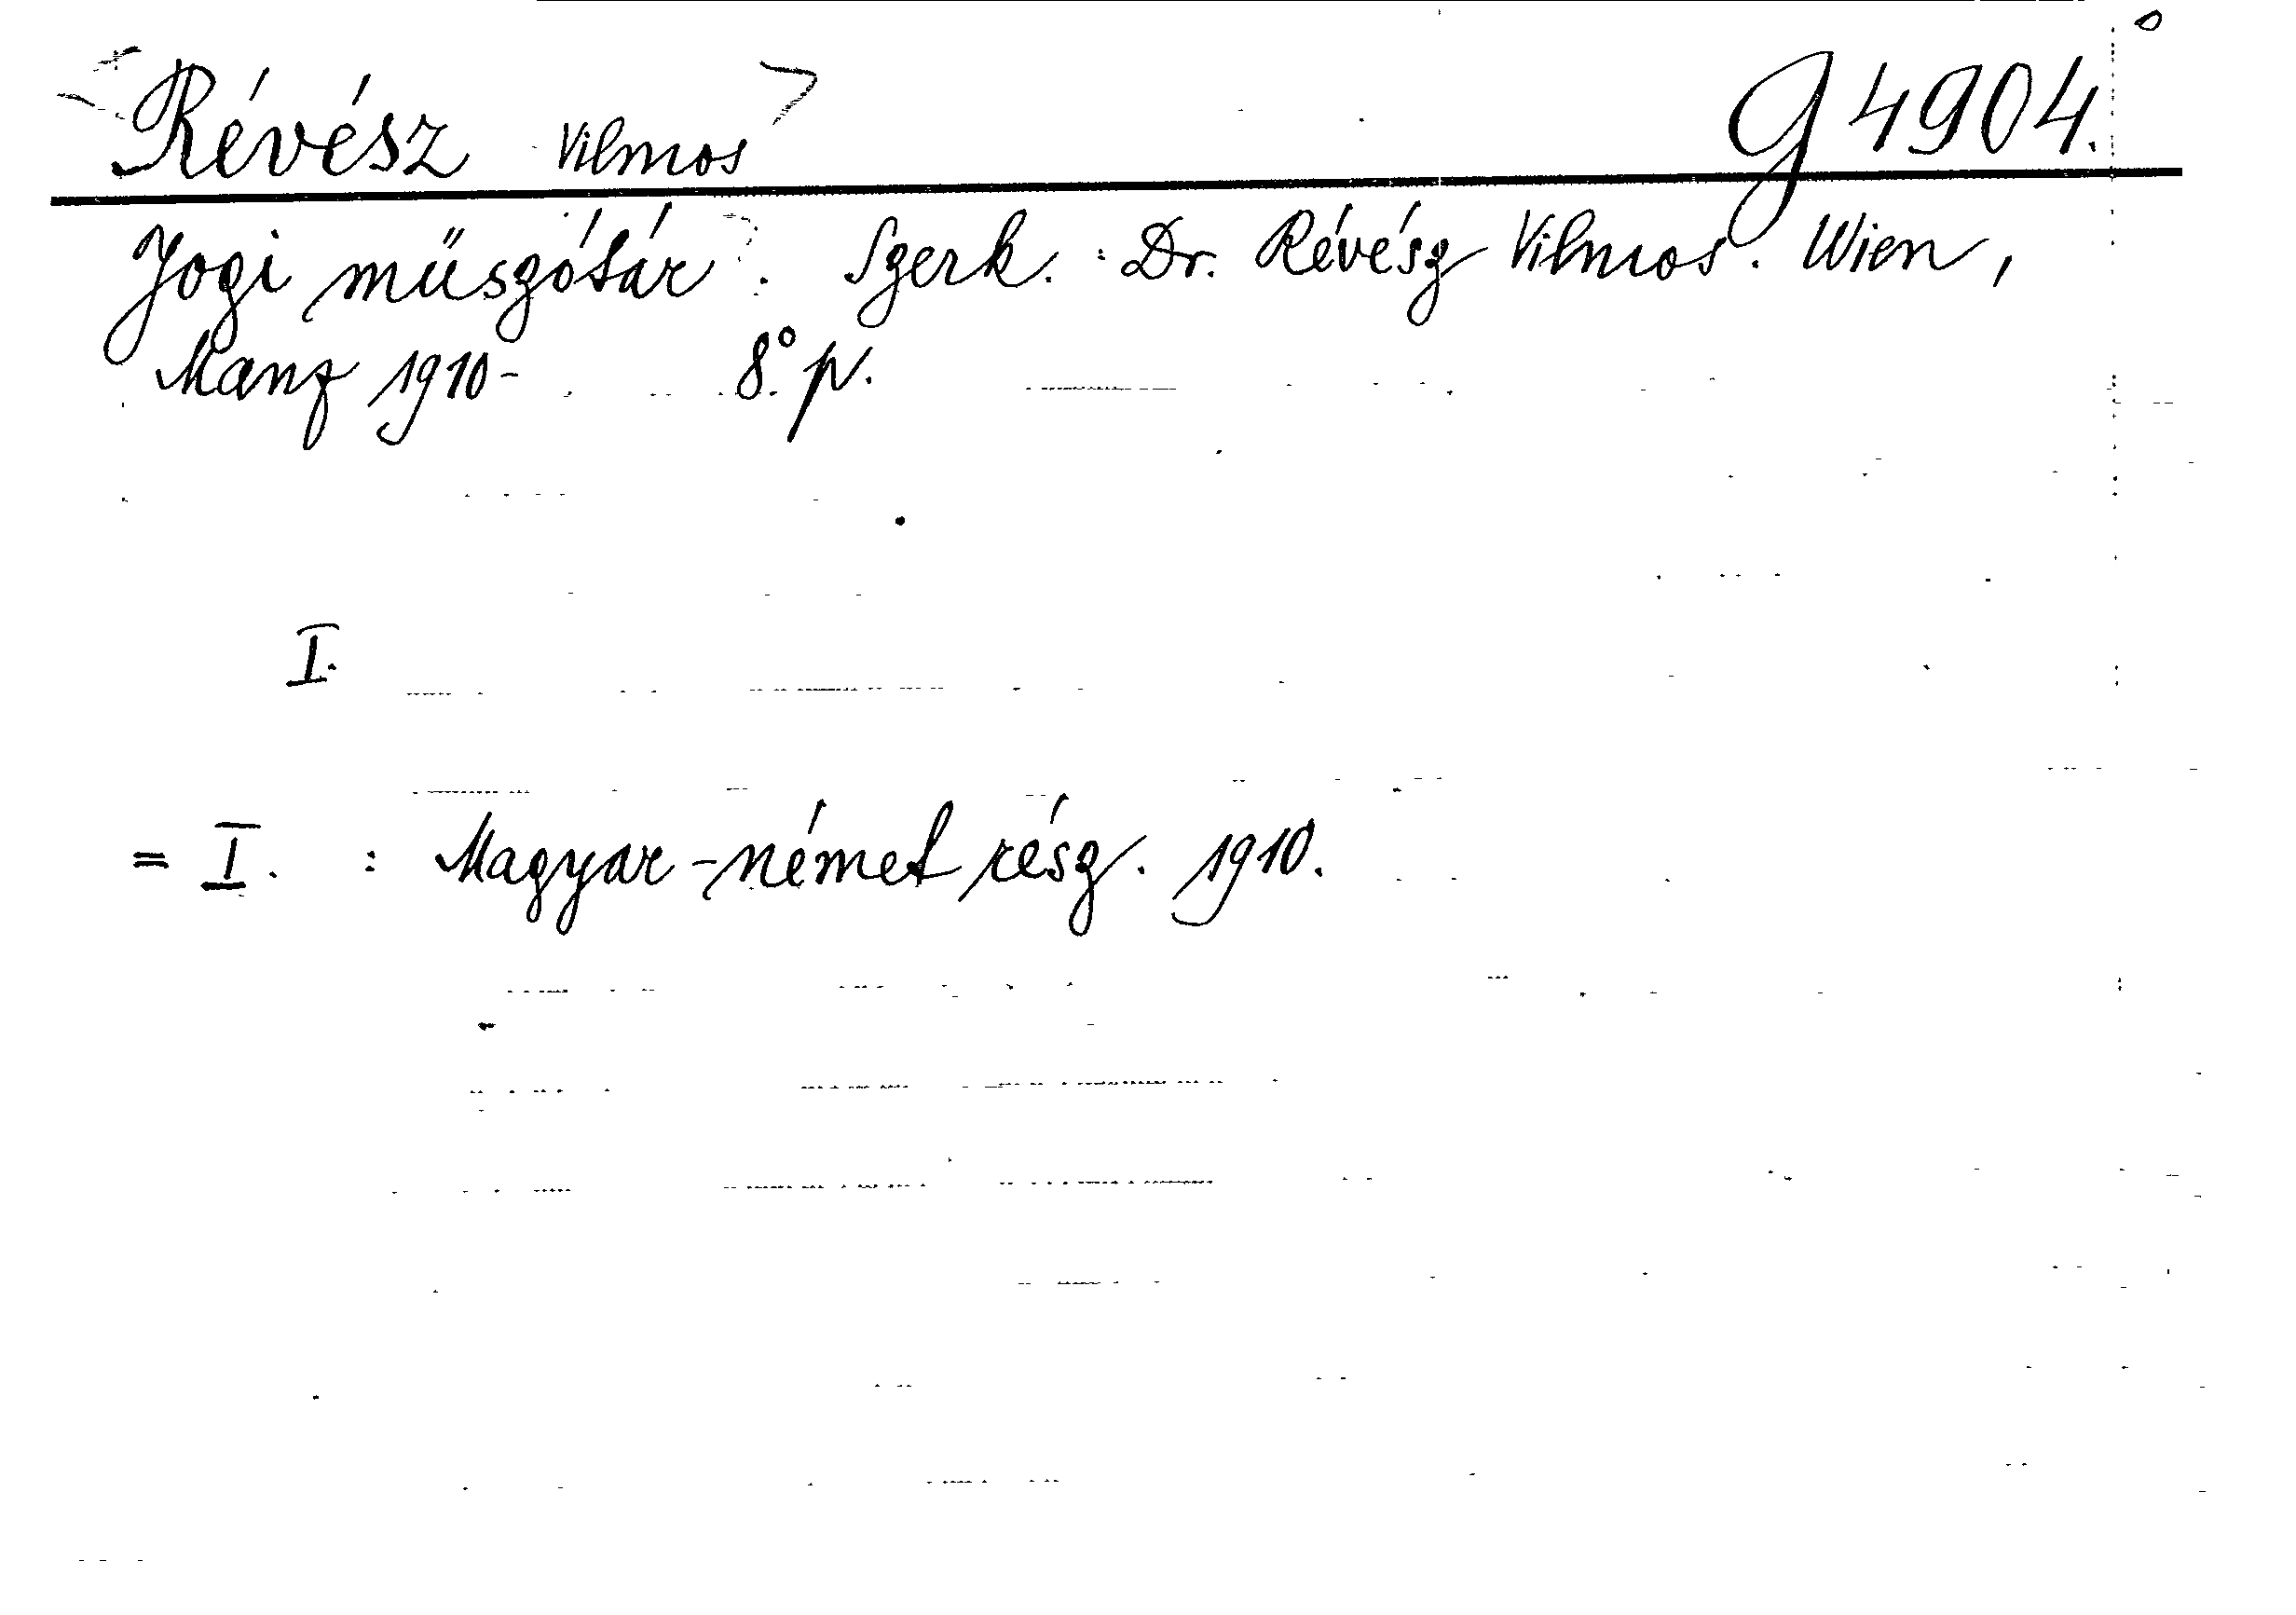 Révész Vilmos G 4904.
Jogi műszótár. Szerk. : Dr. Révész Vilmos. Wien,
Manz 1910- 8° p.
I.
= I. : Magyar-német rész. 1910.